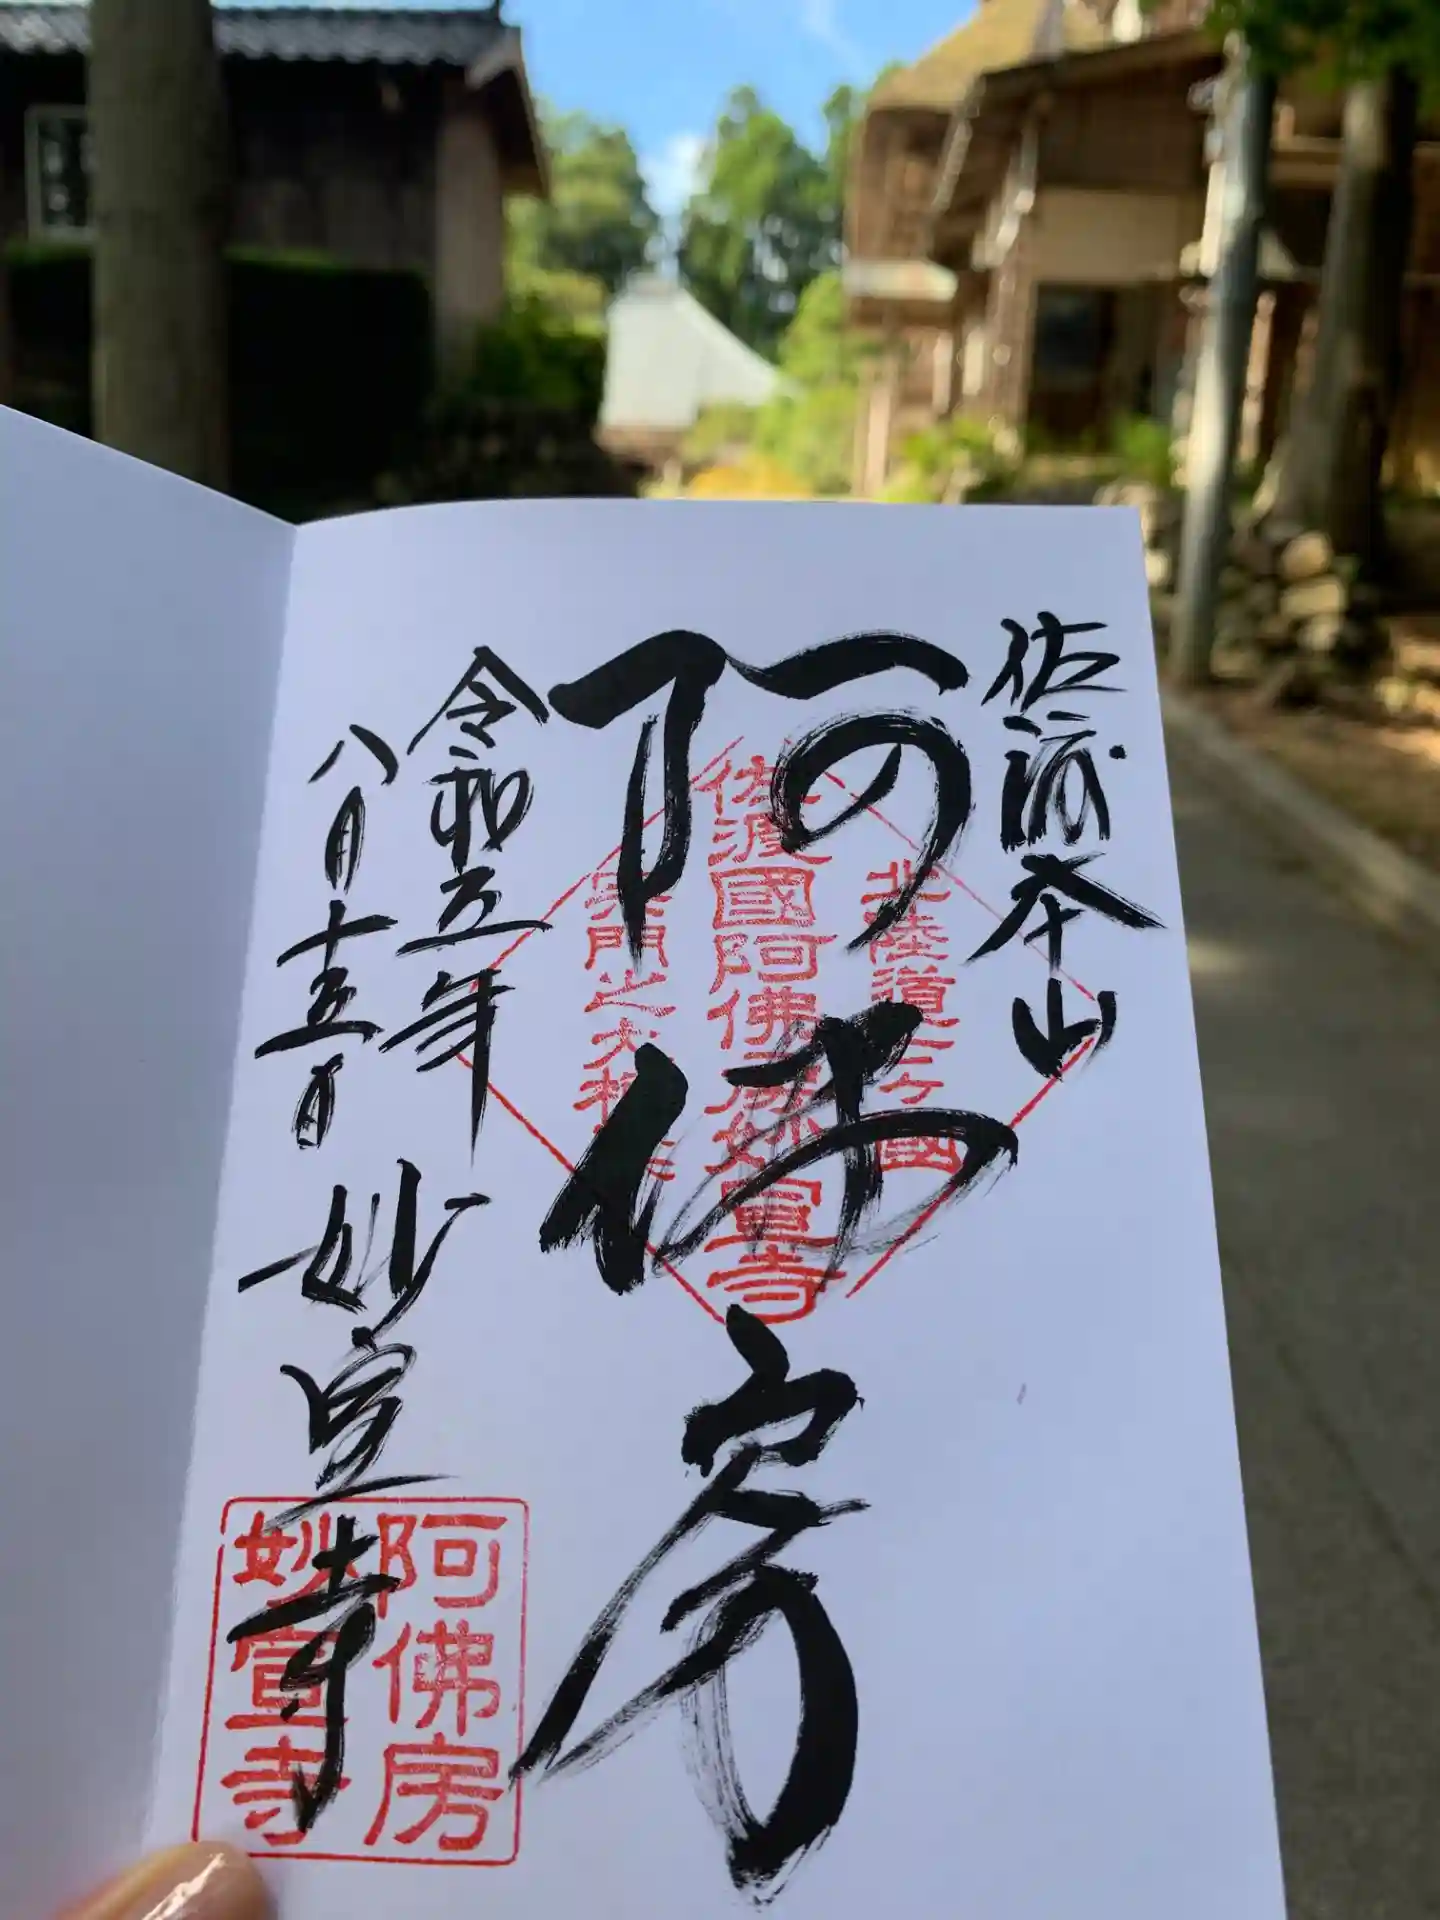 佐渡本山
阿佛房
北陸道三ヶ國
佐渡國阿佛房妙宣寺
令和五年
八月十五日
妙宣寺
阿佛房
妙宣寺